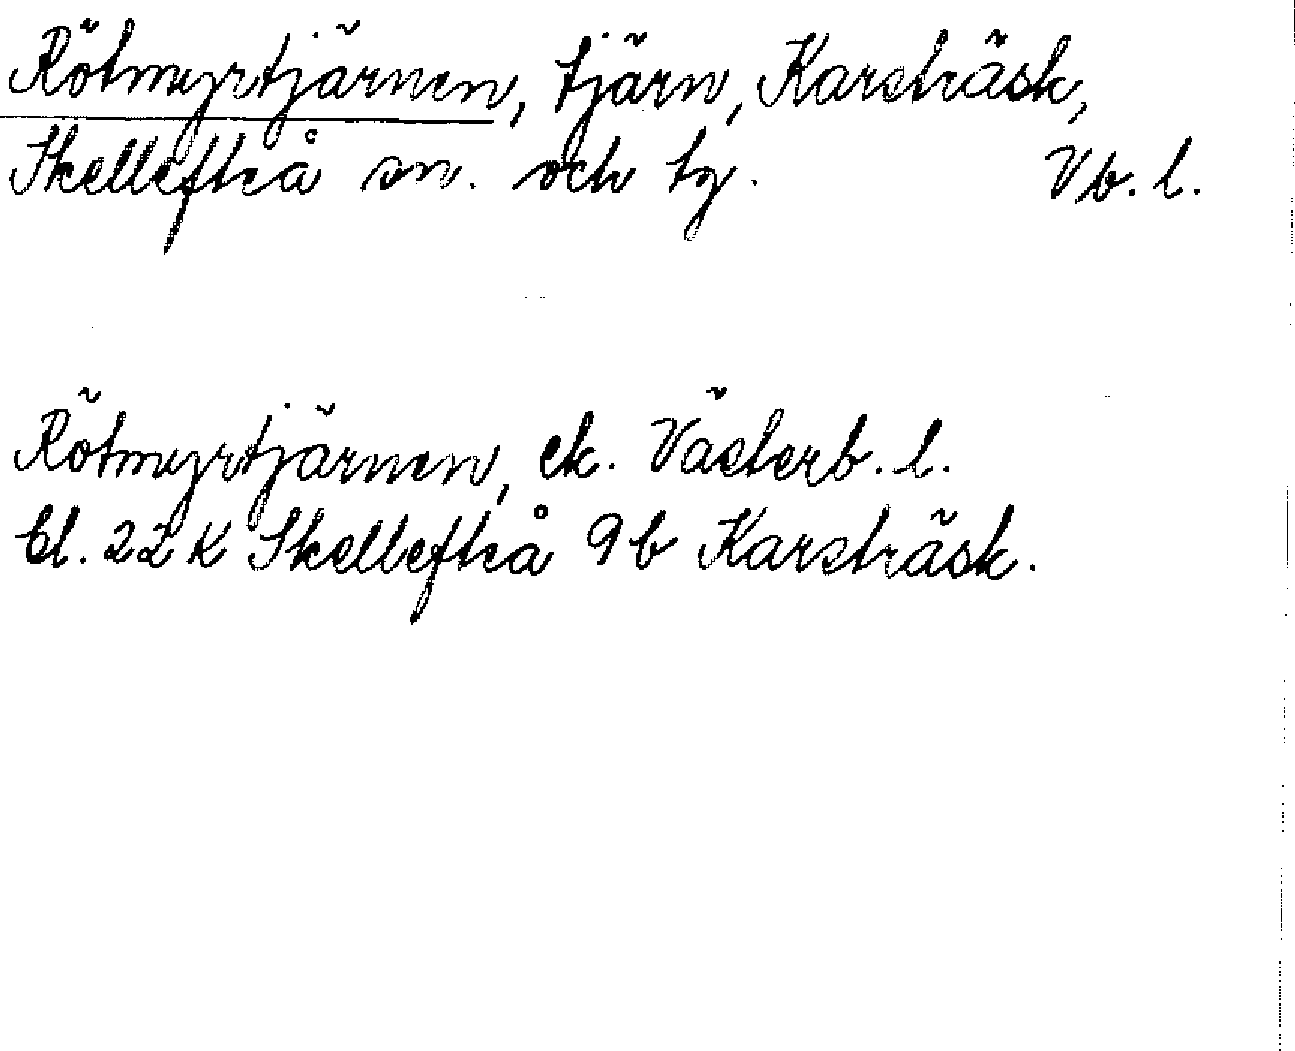 Rötmyrtjärnen, tjärn, Karsträsk,
Skellefteå sn. och tg. Vb. l.
Rötmyrtjärnen, ek. Västerb. l.
bl. 22 K Skellefteå 9 b Karsträsk.